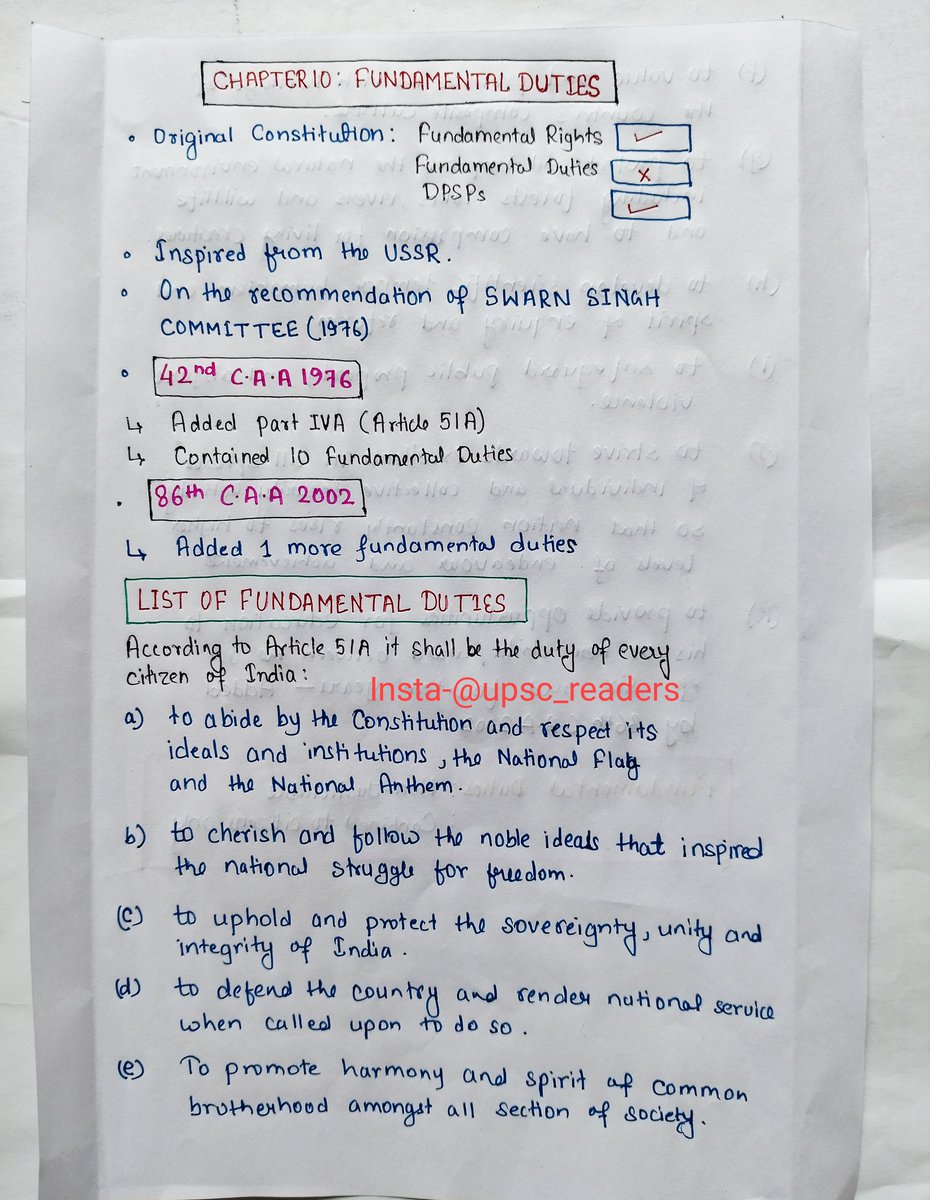 CHAPTER 10: FUNDAMENTAL DUTIES
• Original Constitution: Fundamental Rights ✓
Fundamental Duties x
DPSPs ✓
• Inspired from the USSR.
• On the recommendation of SWARN SINGH
COMMITTEE (1976)
• 42nd C.A.A 1976
↳ Added part IVA (Article 51A)
↳ Contained 10 fundamental Duties
• 86th C.A.A 2002
↳ Added 1 more fundamental duties
LIST OF FUNDAMENTAL DUTIES
According to Article 51A it shall be the duty of every
citizen of India:
Insta-@upsc_readers
a) to abide by the Constitution and respect its
ideals and institutions, the National flag
and the National Anthem.
b) to cherish and follow the noble ideals that inspired
the national struggle for freedom.
(c) to uphold and protect the sovereignty, unity and
integrity of India.
(d) to defend the country and render national service
when called upon to do so.
(e) To promote harmony and spirit of common
brotherhood amongst all section of society.